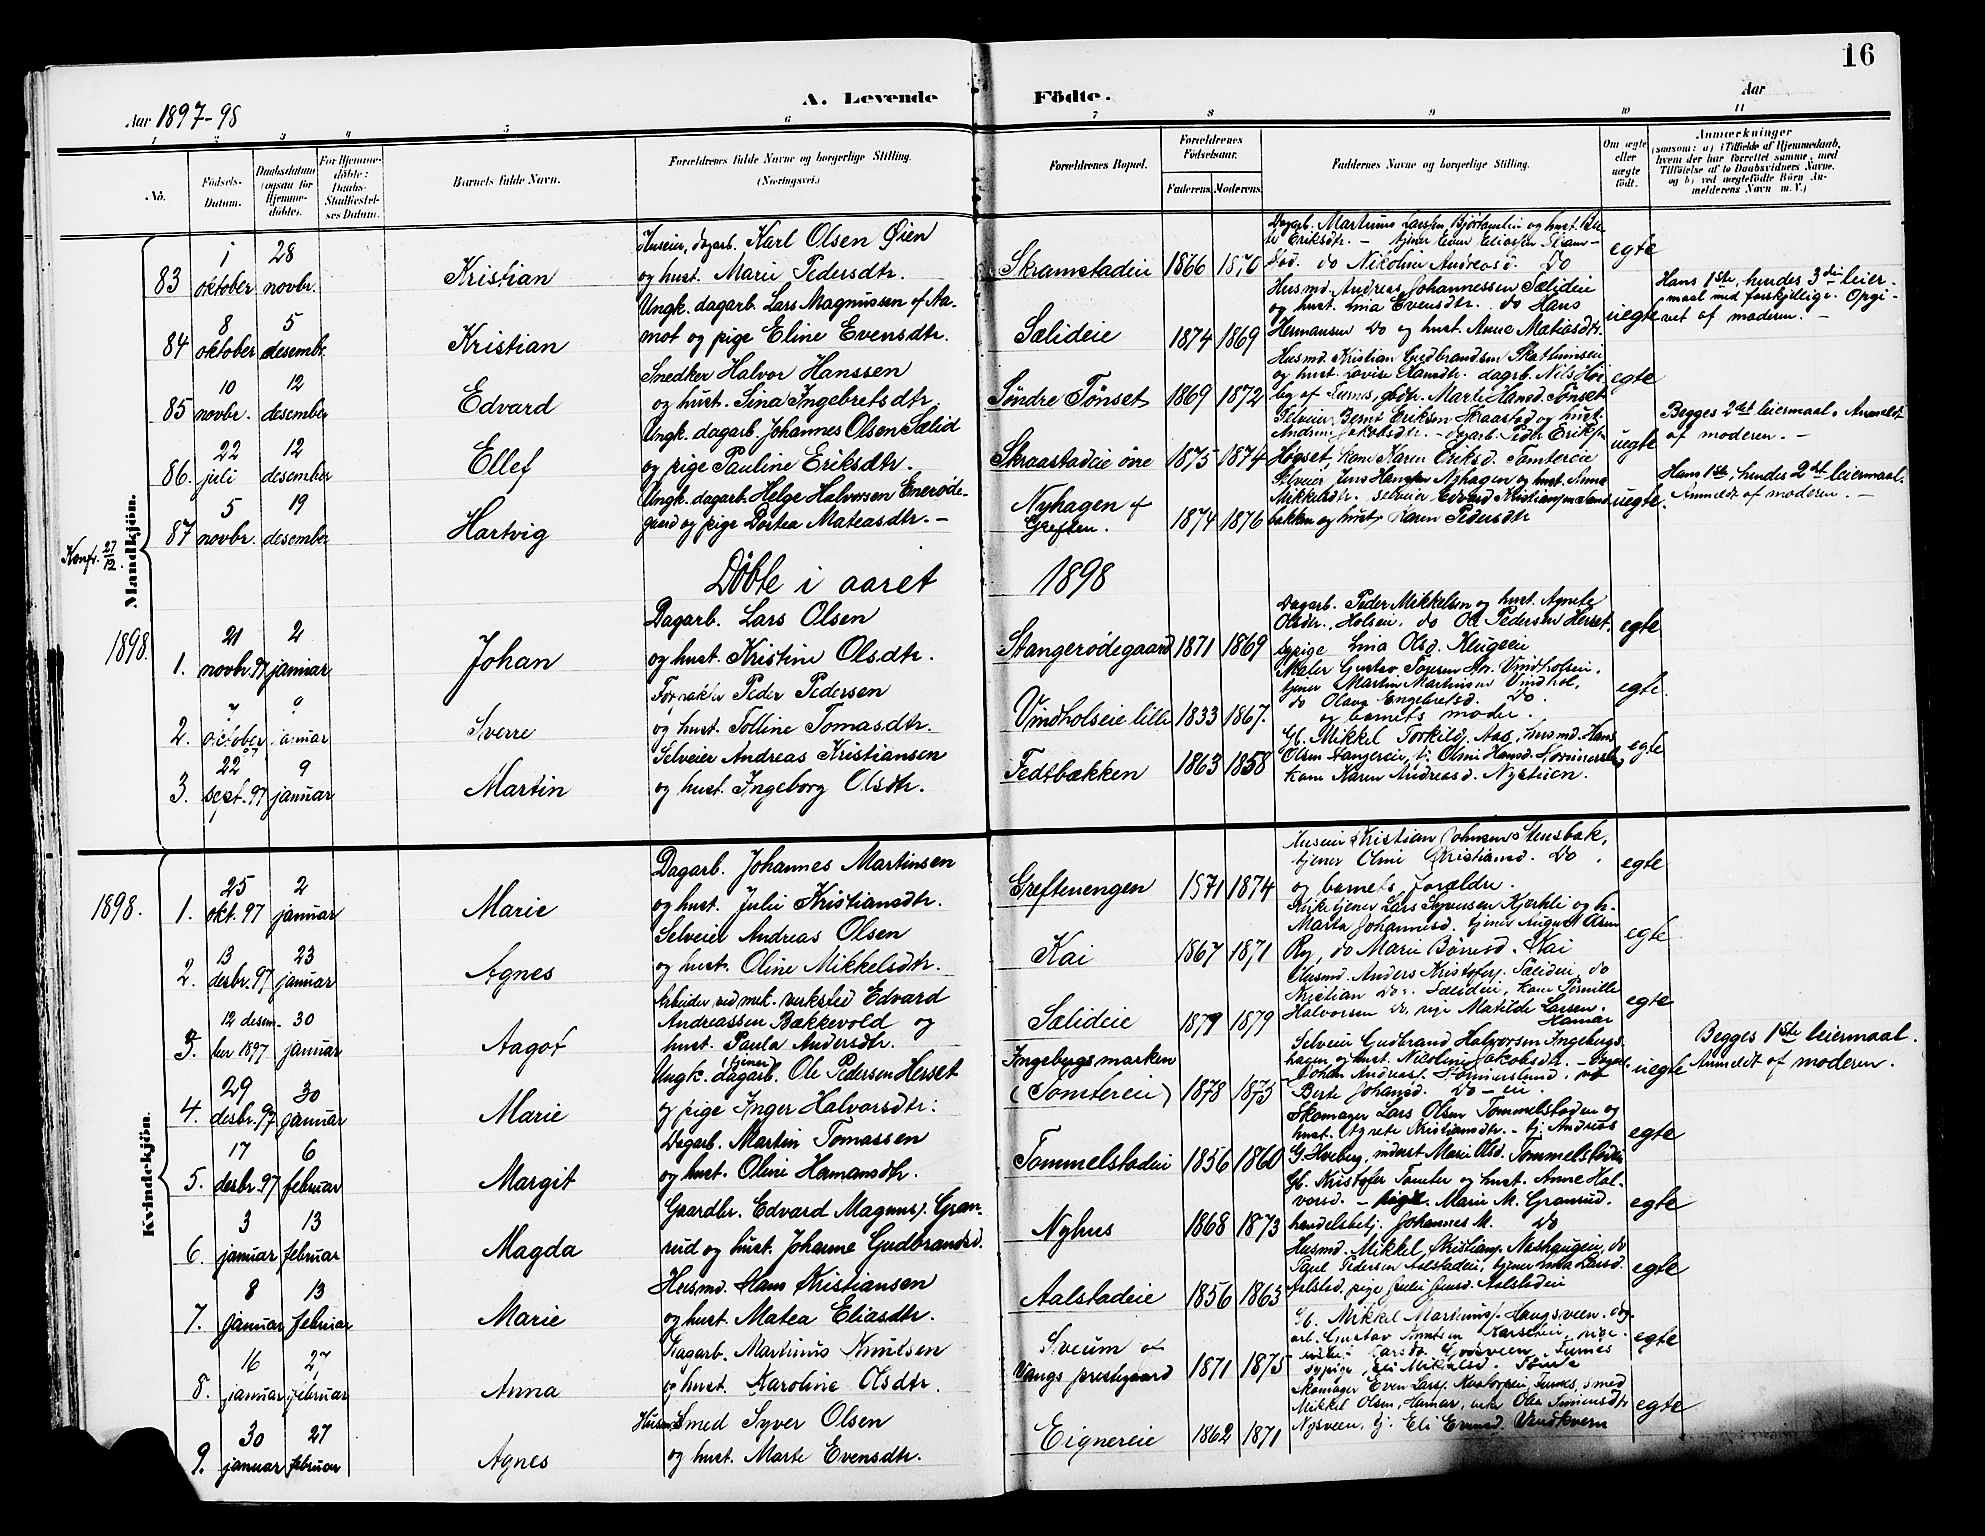 16
A. Levende Födte.
Aar 1897-98
Aar
1 2 3 4 5 6 7 8 9 10 11
No.
Födsels-Datum.
Daabsdatum (ogsaa for Hjemmedöbte).
For Hjemmedöbte: Daabs-Stadfæstelses Datum.
Barnets fulde Navn.
Forældrenes fulde Navne og borgerlige Stilling. (Næringsvei.)
Forældrenes Bopæl.
Forældrenes Födselsaar.
Faderens. Moderens.
Faddernes Navne og borgerlige Stilling.
Om ægte eller uægte födt.
Anmærkninger
(saasom: a) i Tilfælde af Hjemmedaab, hvem der har forrettet samme, med Tilföielse af to Daabsvidners Navne. og b) ved uægtefödte Börn Anmelderens Navn m. V.)
Mandkjön.
83 1 oktober 28 novbr. Kristian
Huseier, dagarb. Karl Olsen Øien
og hust. Marie Pedersdtr.
Skramstadeie 1866 1870
Dagarb. Martinus Larsen
Eriksdtr. – tjener Even Eliassen
do Nikoline Andreasd. Do
egte
84 8 oktober 5 desembr. Kristian
Ungk. dagarb. Lars Magnussen af Aamot og pige Eline Evensdtr.
Sælideie 1874 1869
Husmd. Andreas Johannessen Sælideie
og hust. Lina Evensdtr. do Hans
Hermansen Do og hust. Anne Matiasdtr.
uegte
Hans 1ste, hendes 3die leiermaal med forskjellige. Opgivet af moderen. –
85 10 novbr. 12 desember Edvard
Snedker Halvor Hanssen
og hust. Sina Ingebretsdtr.
Søndre Tønset 1869 1872
Husmd. Kristian Gudbrandsen
og hust. Lovise Hansdtr. dagarb. Nils
af Furnes, Marte Hansd. Tønset
egte
86. 22 juli 12 desember Ellef
Ungk. dagarb. Johannes Olsen Sælid
og pige Pauline Eriksdtr.
Skraastadeie øvre 1875 1874
Selveier Bernt Eriksen Skraastad og hust.
Andrine Jakobsdtr. – dagarb. Peder Eriks.
Høgset, kone Karen Eriksd. Tomtereie
uegte
Begges 2det leiermaal. Anmeldt af moderen. –
87 5 novbr. 19 desember Hartvig
Ungk. dagarb. Helge Halvorsen Enerødegaard og pige Dortea Mateasdtr. –
Nyhagen af Greften. 1874 1876
Selveier Jens Hansen Nyhagen og hust. Anne
Mikkelsdtr. selveier Edvard Kristiansen
bakken og hust. Karen Pedersdtr
uegte.
Hans 1ste, hendes 2det leiermaal. Anmeldt af moderen. –
Konf. 27/12.
Døbte i aaret 1898
1898.
1. 21 novbr. 97 2 januar Johan
Dagarb. Lars Olsen
og hust. Kristine Olsdtr.
Stangerødegaard 1871 1869
Dagarb. Peder Mikkelsen og hust. Agnete
Olsdtr. Holseie, do Ole Pedersen Herset.
sypige Lina Olsd.
egte
2. 7 october 9 januar Sverre
Peder Pedersen
og hust. Tolline Tomasdtr.
Vindholseie lille 1833 1867.
Maler Gustav Vindholseie,
tjener Martin Martinsen Vindhol,
do Olava Engebretsd. Do.
og barnets moder.
egte.
3. 22 sept. 97 9 januar Martin
Selveier Andreas Kristiansen
og hust. Ingeborg Olsdtr.
Fedtbækken 1863 1858
Gb. Mikkel Torkilds. Aas, husmd. Hans
Olsen Stangereie, tj. Oline Hansd.
kone Karen Andreasd. Nystuen.
egte
Kvindekjön.
1898.
1. 25 okt. 97 2 januar Marie
Dagarb. Johannes Martinsen
og hust. Julie Kristiansdtr.
Greftenengen 1871 1874
Huseier Kristian Johansen Stensbak,
tjener Oline Kristiansd. Do.
og barnets forældre.
egte
2. 13 desbr. 97 23 januar Agnes
Selveier Andreas Olsen
og hust. Oline Mikkelsdtr.
Kai 1867 1871
Kirketjener Lars Syversen Kjerkli og h.
Marta Johannesd. tjener August Olsen
Ry, do Marie Børresd. Kai
egte
3. 12 desember 1897 30 januar Aagot
Arbeider ved mek. verksted Edvard
Andreassen Bækkevold og
hust. Paula Andersdtr.
Sælideie 1879 1879
Husmd. Anders Kristofers. Sælideie, do
Kristian Do. Sælideie, kone Pernille
Halvorsen Do, pige Matilde Larsen.
Hamar
egte
4. 29 desbr. 97 30 januar Marie
Ungk. (tjener) dagarb. Ole Pedersen Herset
og pige Inger Halvorsdtr.
Ingebergsmarken (Tomtereie) 1878 1875
Selveier Gudbrand Halvorsen Ingebergshagen og hust. Nicoline Jakobsdtr. –
Johan Andreas.
Berte Johansd. Do – eie
uegte
Begges 1ste leiermaal. Anmeldt af moderen.
5. 17 desbr. 97 6 februar Margit
Dagarb. Martin Tomassen
og hust. Oline Hermansdtr.
Tommelstadeie 1856 1860
Skomager Lars Olsen Tommelstadeie og
hust. Agnete Kristiansdtr. – tj. Andreas
G. Hveberg, inderst Marie Olsd. Tommelstadeie
egte
6. 3 januar 13 februar Magda
Gaardbr. Edvard Magnus. Granrud og hust. Johanne Gudbrandsd.
Nyhus 1868 1873
Gb. Kristofer Tomter og hust. Anne Halvorsd. – pige Marie M. Granrud.
handelsbetj. Johannes M. Do
egte
7. 8 januar 13 februar Marie
Husmd. Hans Kristiansen
og hust. Matea Eliasdtr.
Aalstadeie 1856 1863
Husmd. Mikkel Kristians. Nashaugeie, do
Paul Pedersen Aalstadeie, tjener Larsd.
Aalstad, pige Julie Aalstadeie
egte
8. 16 januar 27 februar Anna
Dagarb. Martinus Knutsen
og hust. Karoline Olsdtr.
Sveum af Vangs prestegaard 1871 1875
Gb. Mikkel Martinus. Haugsveen. dagarb. Gustav Knutsen
Furnes
sypige, Eli Mikkelsd.
egte
9. 30 januar 27 februar Agnes
Husmd. Smed Syver Olsen
og hust. Marte Evensdtr.
Eignereie 1862 1871
Skomager Even Lars. Furnes, smed
Mikkel Olsen, Hamar, enke Olea Simensdtr
Nysveen, tj. Eli Evensd. Vendkvern
egte